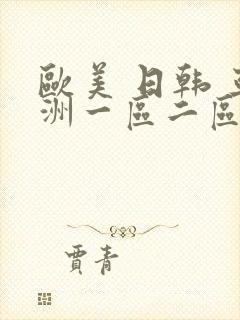 歐美日韓
洲一區二區
賈青